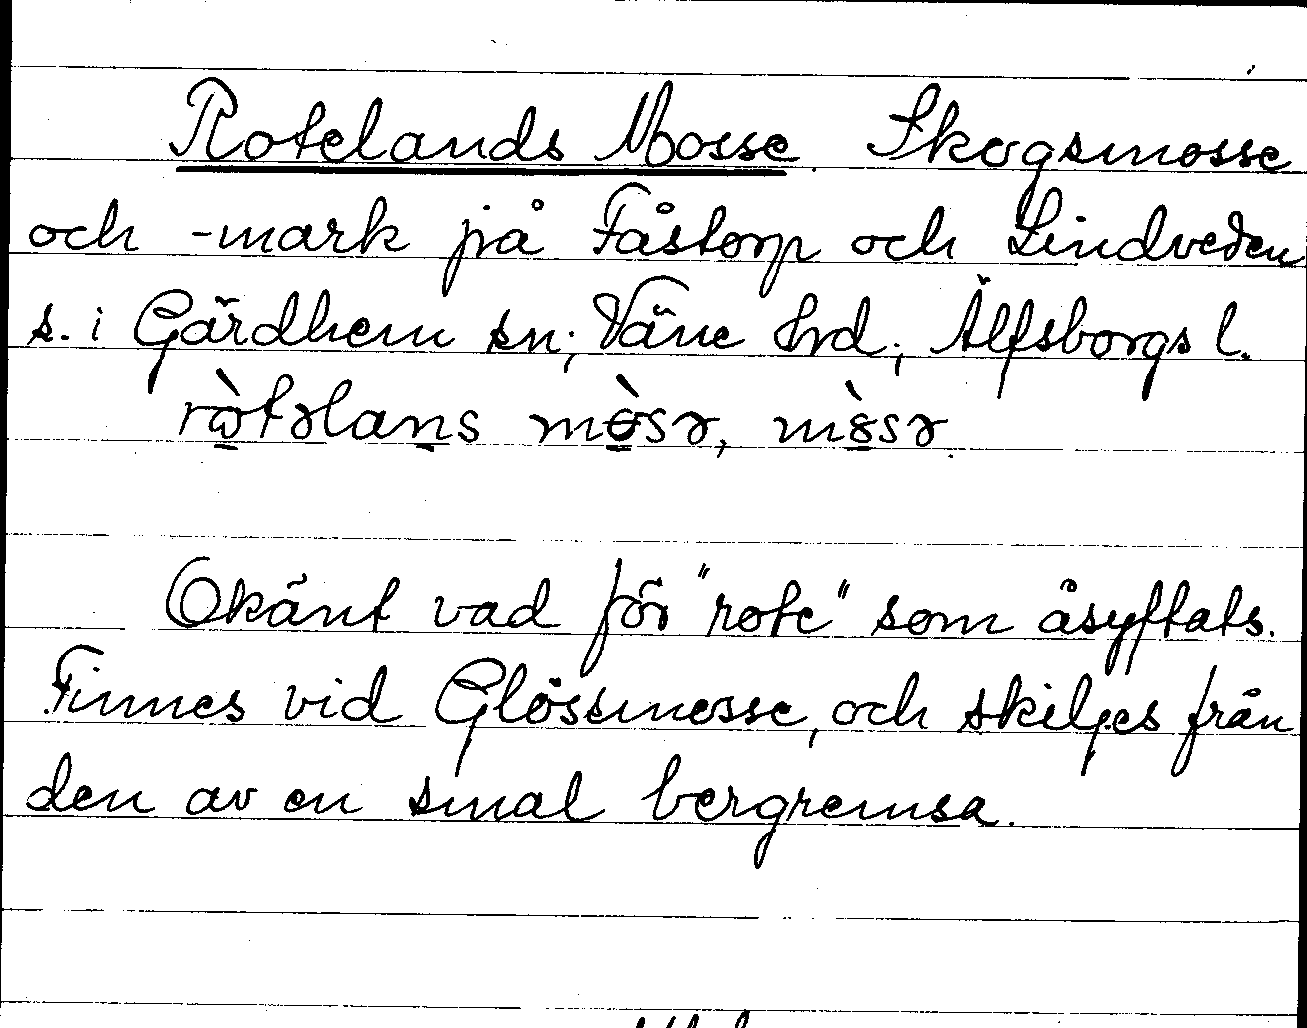 Rotelands Mosse Skogsmosse
och -mark på Fåstorp och Lindveden
s. i Gärdhem sn; Väne hrd; Älfsborgs l.
rὼtəlans mɵ̀sə, m8̀sə.
Okänt vad för "rote" som åsyftats.
Finnes vid Glössmosse, och skiljes från
den av en smal bergremsa.